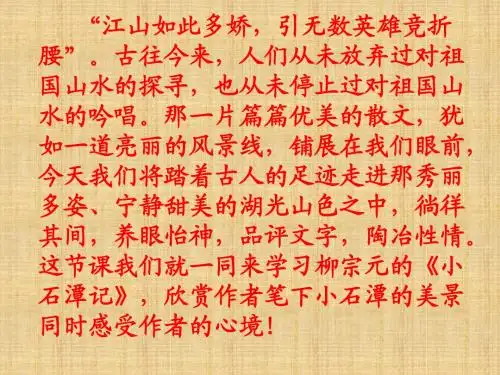 “江山如此多娇，引无数英雄竞折
腰”。古往今来，人们从未放弃过对祖
国山水的探寻，也从未停止过对祖国山
水的吟唱。那一片篇篇优美的散文，犹
如一道亮丽的风景线，铺展在我们眼前，
今天我们将踏着古人的足迹走进那秀丽
多姿、宁静甜美的湖光山色之中，徜徉
其间，养眼怡神，品评文字，陶冶性情。
这节课我们就一同来学习柳宗元的《小
石潭记》，欣赏作者笔下小石潭的美景
同时感受作者的心境！